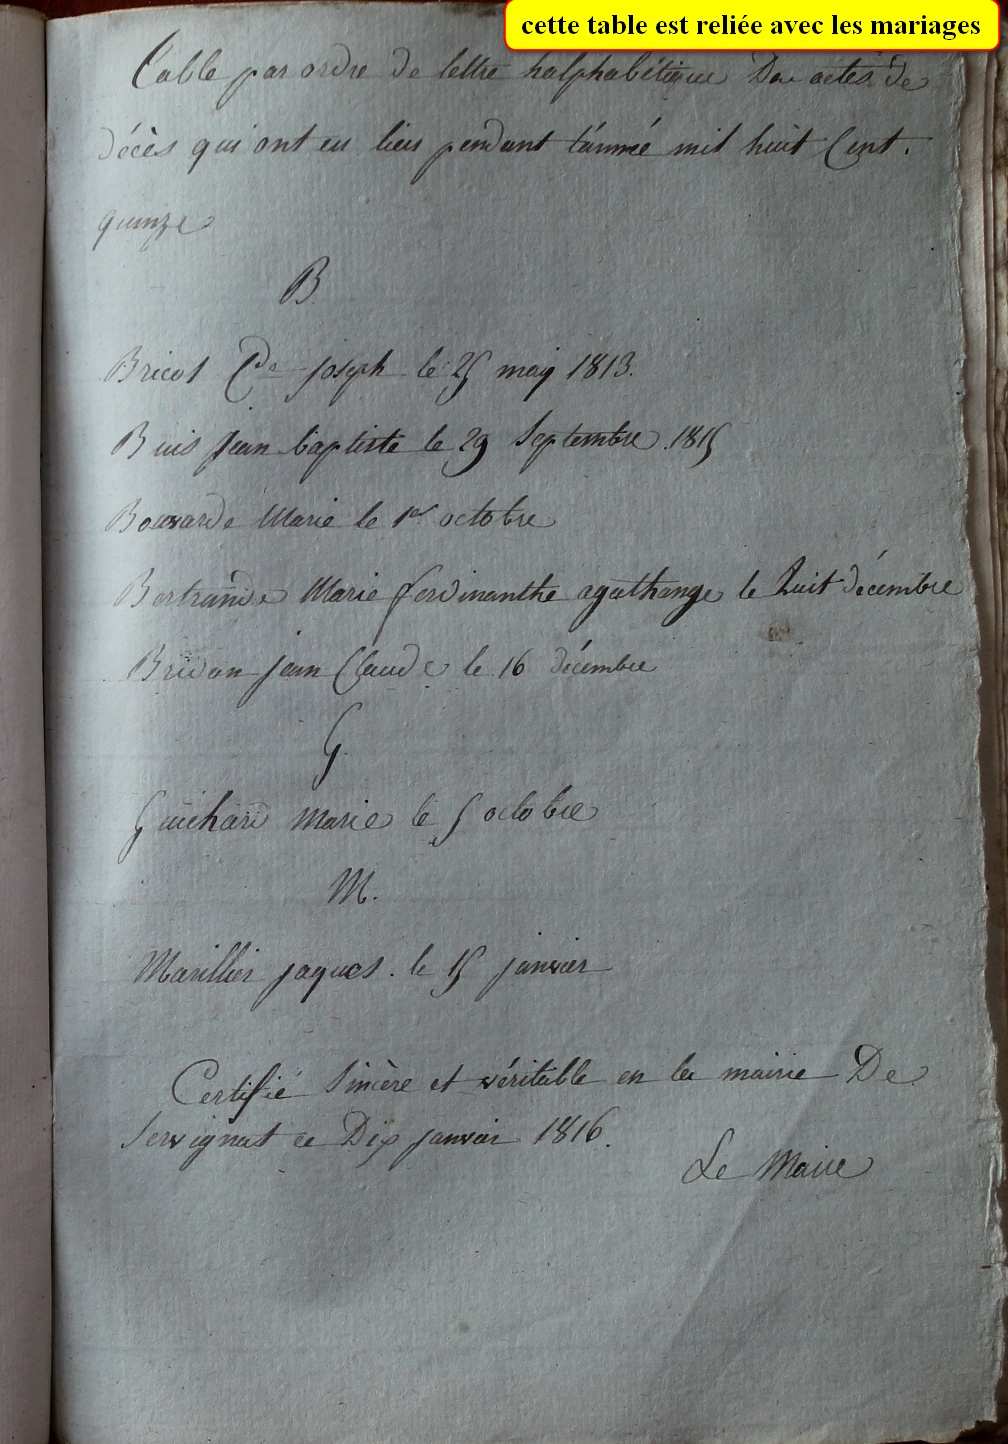 cette table est reliée avec les mariages
Table par ordre de lettre halphabétique Des actes de
décès qui ont eu lieu pendant l'année mil huit Cent.
quinze
B.
Bricot Cde joseph le 25 may 1813.
Buis Jean baptiste le 29 Septembre 1815
Bouvarde Marie le 1er octobre
Bertrande Marie ferdinanthe agathange le huit décembre
Bridon jean Claude le 16 décembre
G.
Guichard Marie le 5 octobre
M.
Marillier jaques. le 15 janvier
Certifié Sincère et véritable en la mairie De
Servignat ce Dix janvier 1816.
Le Maire